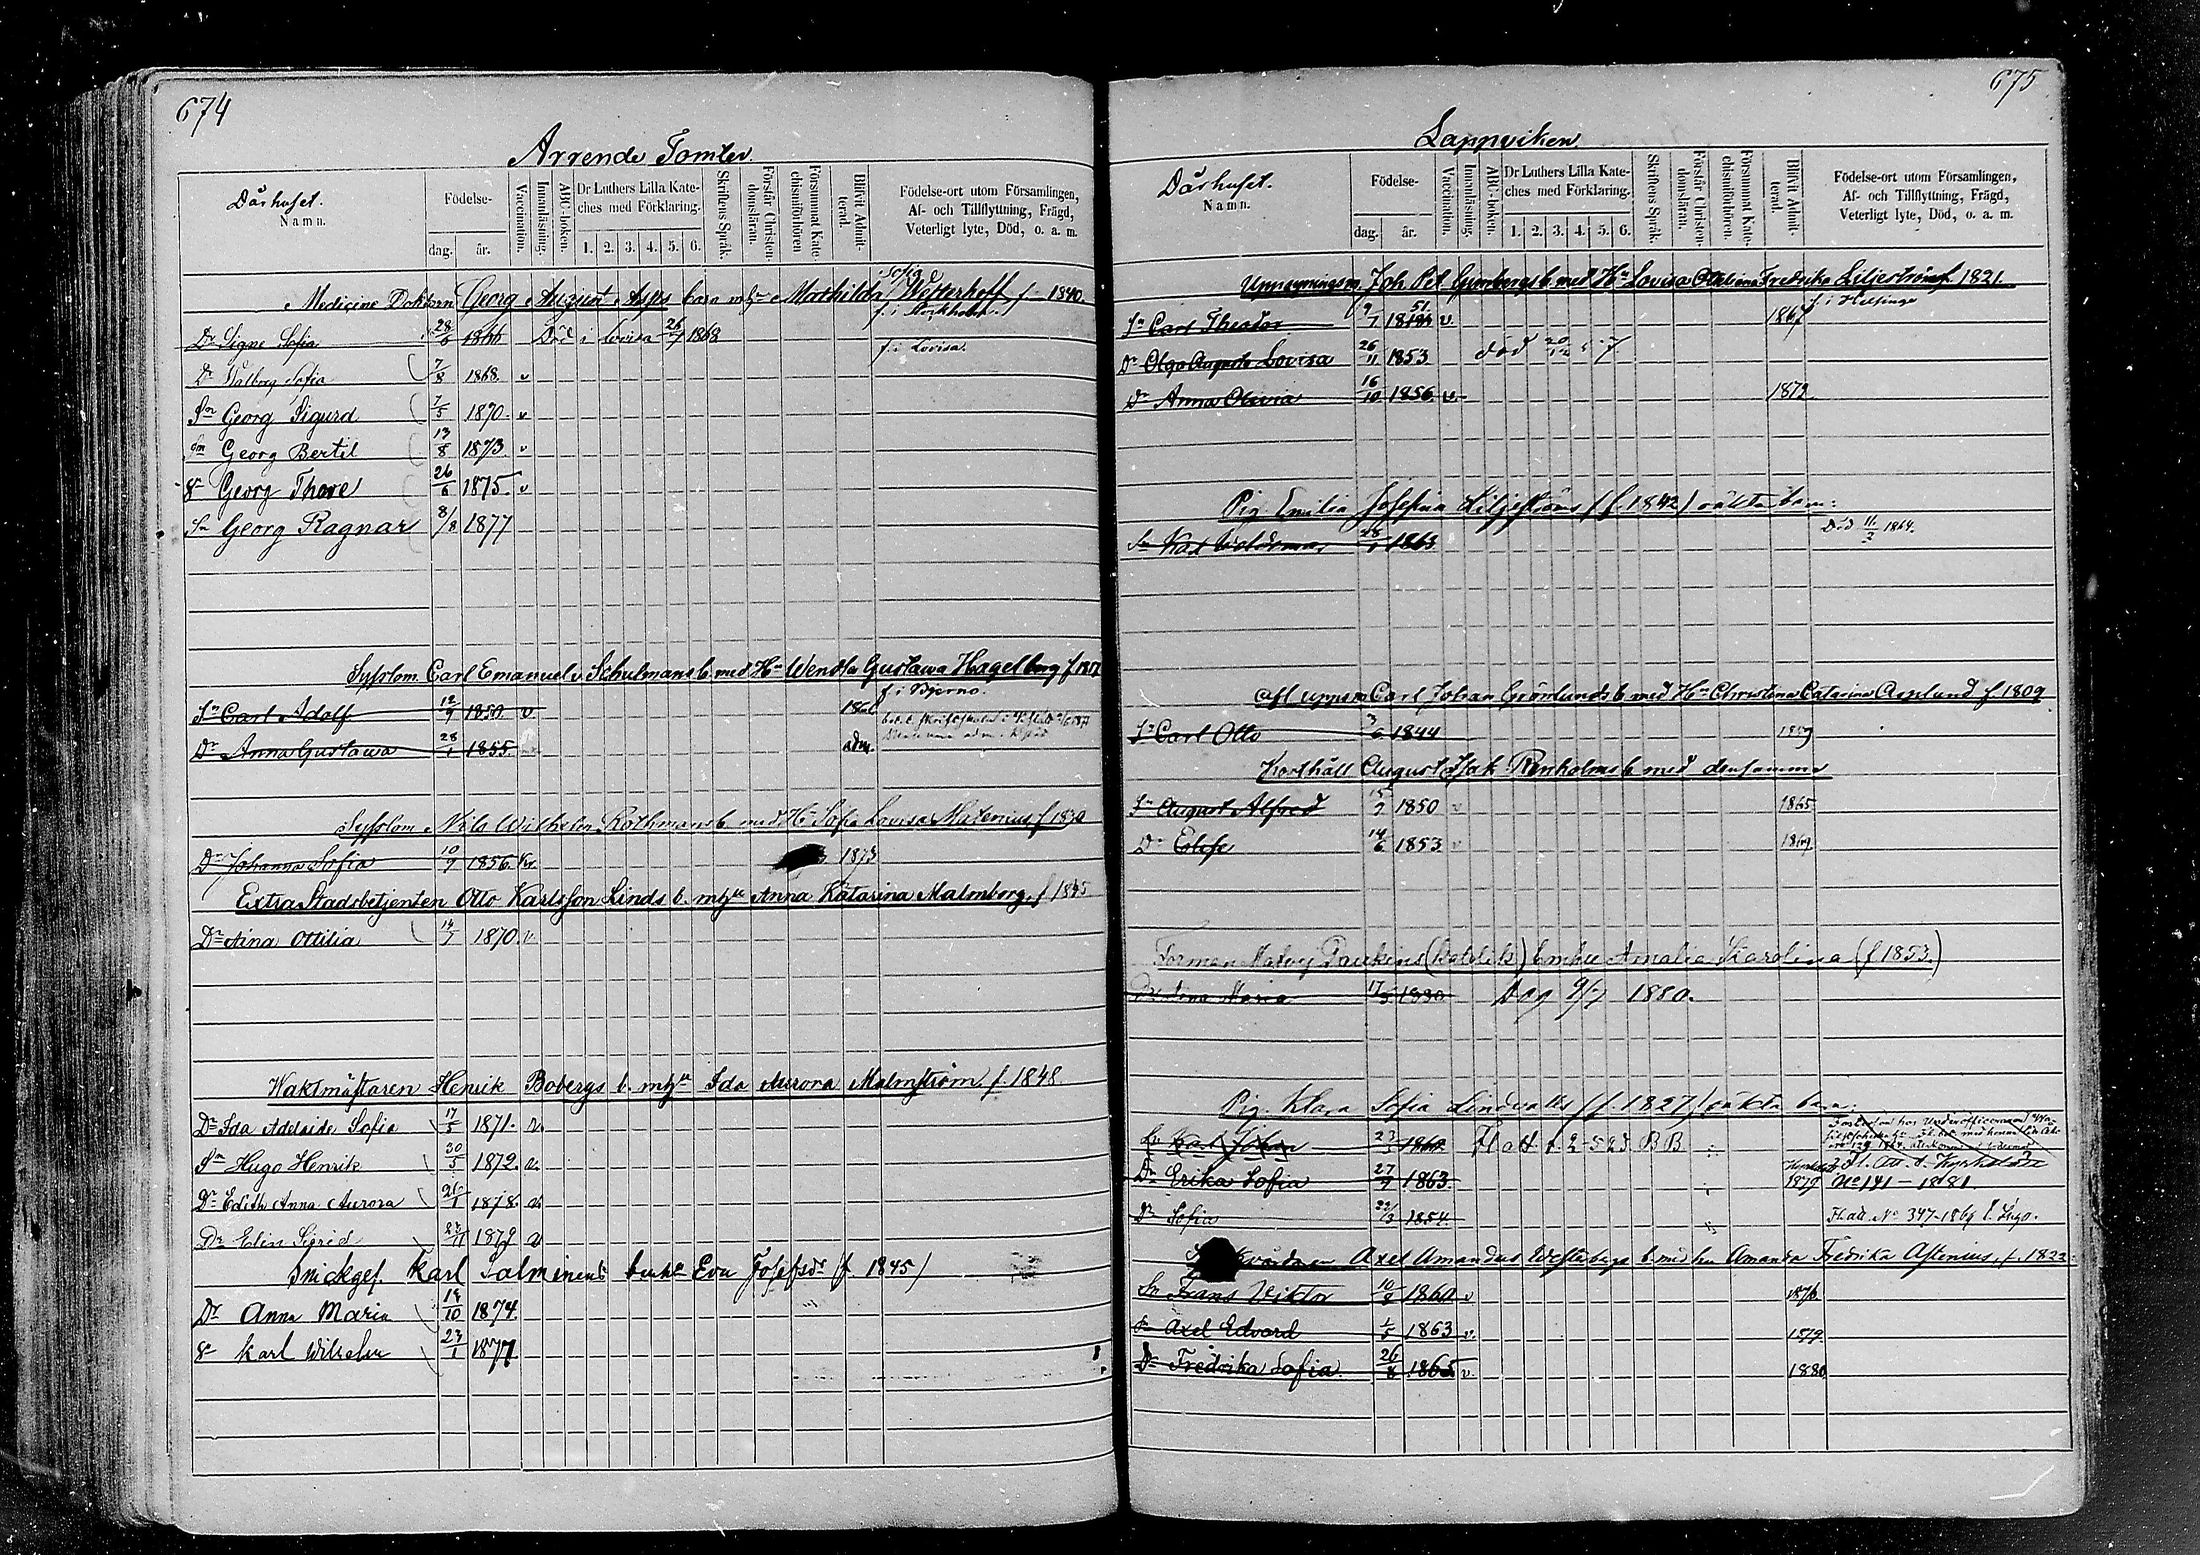 674
Arrende Tomter.
Dårhuset.
Namn.
Födelse-
dag. år.
Vaccination.
Innanläsning.
ABC-boken.
Dr Luthers Lilla Kate-
ches med Förklaring.
1. 2. 3. 4. 5. 6.
Skriftens Språk.
Förstår Christen-
domsläran.
Försummat Kate-
chismiförhören
Blifvit Admit-
terad.
Födelse-ort utom Församlingen,
Af- och Tillflyttning, Frägd,
Veterligt lyte, Död, o. a. m.
Medicine Doktorn Georg August Asps barn mhu Mathilda Sofia Wetterhoff f. 1840.
Dr Signe Sofia 28/6 1866 Död i Lovisa 26/7 1868 f. i Stockholm.
f. i Lovisa.
Dr Walborg Sofia 7/8 1868. v
Sn Georg Sigurd 7/5 1870. v
Sn Georg Bertil 13/8 1873. v
Sn Georg Thore 26/6 1875. v
Sn Georg Ragnar 8/8 1877
Sysslom Carl Emanuel v Schulmans b. med Hu Wendla Gustawa Hagelberg f.
f. i Bjerno.
Sn Carl Adolf 12/9 1850. v
Dr Anna Gustawa 28/1 1855. adm.
Sysslom Nils Wilhelm Rothmans b. med Hu Sofia Lovisa f 1830
Dr Johanna Sofia 10/9 1856. 1873
Extra Stadsbetjenten Otto Karlsson Linds b. mhu Anna Katarina Malmborg. f 1845
Dr Aina Ottilia 14/7 1870. v
Waktmästaren Henrik Bobergs b. mhu Ida Aurora Malmström. f. 1848
Dr Ida Adelaide Sofia 17/5 1871. v.
Sn Hugo Henrik 30/5 1872. v.
Dr Edith Anna Aurora 26/1 1878. v.
Dr Elin Sigrid 1879 v
Snickges. Karl Salminens b mhu Eva Josefsdr (f. 1845)
Dr Anna Maria 1874.
Sn Karl Wilhelm 23/1 1877
675
Lappviken
Dårhuset.
Namn.
Födelse-
dag. år.
Vaccination.
Innanläsning.
ABC-boken.
Dr Luthers Lilla Kate-
ches med Förklaring.
1. 2. 3. 4. 5. 6.
Skriftens Språk.
Förstår Christen-
domsläran.
Försummat Kate-
chismiförhören.
Blifvit Admit-
terad.
Födelse-ort utom Församlingen,
Af- och Tillflyttning, Frägd,
Veterligt lyte, Död, o. a. m.
Uppsyningsm. Joh Pet Grönbergs b. med Hu Lovisa Fredrika Liljeström f. 1821.
f. i Helsinge
Sn Carl Theodor 9/7 v. 1867
Dr Olga Augusta Lovisa 26/11 1853 död
Dr Anna Olivia 16/10 1856. v. 1872
Pig. Emilia Josefina Liljeströms (f. 1842) oäkta barn:
Sn Karl Woldemar 28/1 1863 Död 11/3 1864.
Afl uppsm Carl Johan Grönlunds b. med Hu Christina Catarina Asplund f 1809
Sn Carl Otto 3/6 1844 1859
August Isak Renholms b. med densamma
Sn August Alfred 15/7 1850 v 1865
Dr Elise 14/6 1853 v 1869
Forman Matvej (katolik) b mhu Amalia Karolina (f 1853.)
Dr Maria 17/5 1880 Dog 9/7 1880.
Pig. Klara Sofia Lindvalls (f. 1827) oäkta barn:
Sn Karl Johan 23/3 1860 Flatt
Dr Erika Sofia 27/7 1863. 1879 No 141 - 1881.
Dr Sofia 22/3 1854. Fl. att. No 347-1869 t.
Axel Amandus b. med hu Amanda Fredrika Aftenius, f. 1823:
Sn Frans Viktor 10/8 1860 v 1876
Sn Axel Edvard 1/5 1863 v. 1879.
Dr Fredrika Sofia. 26/8 1865 v. 1880